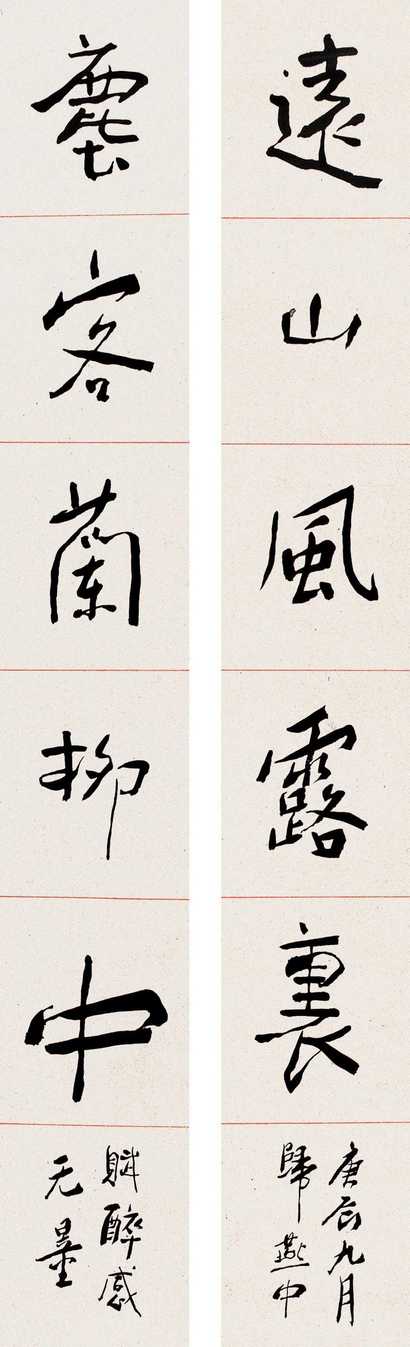 遠山風露裏
庚辰九月
歸燕中
塵客蘭柳中
賦醉感
无量